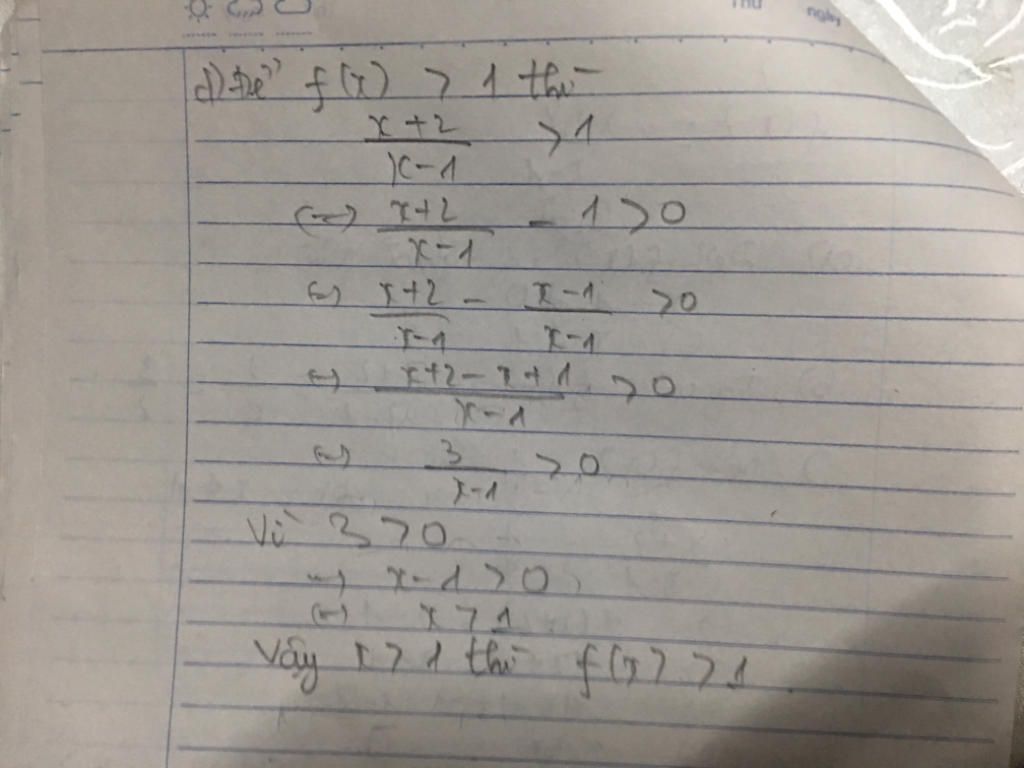 Thứ
ngày
d) Để f(x) > 1 thì
x+2 / x-1 > 1
(=) x+2 / x-1 - 1 > 0
(=) x+2 / x-1 - x-1 / x-1 > 0
(=) x+2-x+1 / x-1 > 0
(=) 3 / x-1 > 0
Vì 3 > 0
=) x-1 > 0
(=) x > 1
Vậy x > 1 thì f(x) > 1